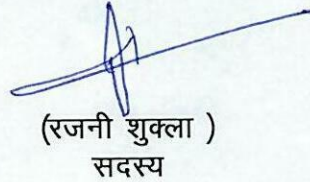 (रजनी शुक्ला )
सदस्य